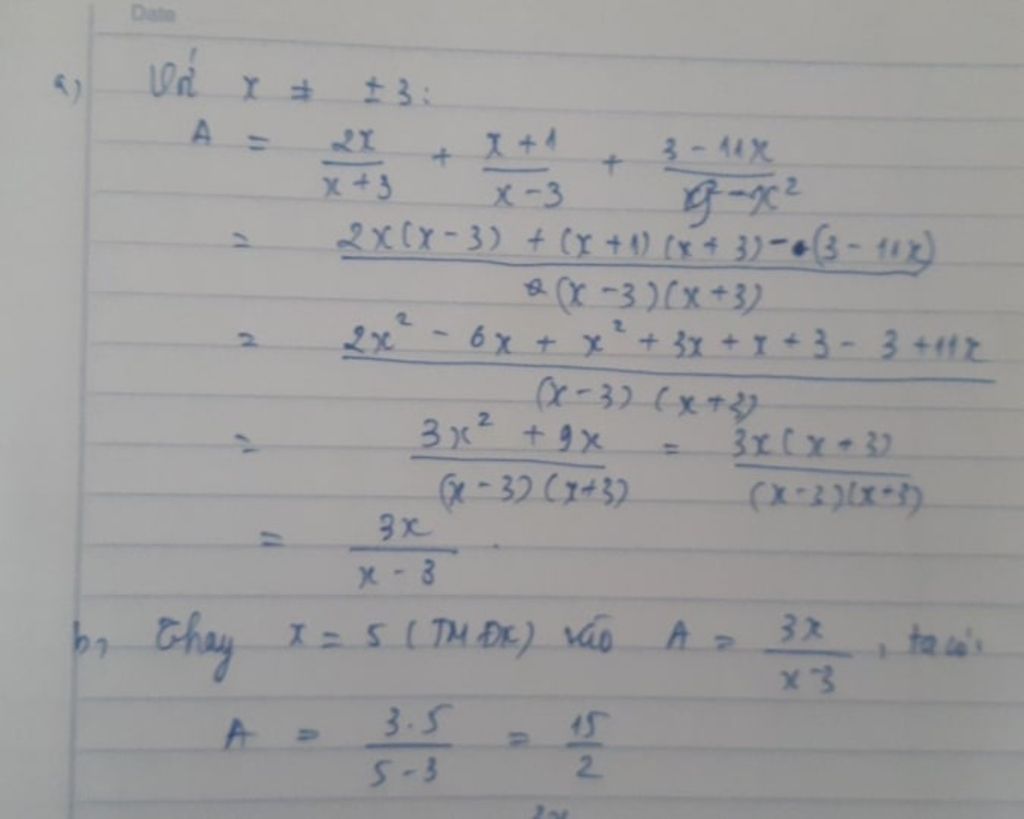 Date
a) Với x ≠ ±3:
A = 2x/(x+3) + (x+1)/(x-3) + (3-11x)/(9-x²)
= (2x(x-3) + (x+1)(x+3) - (3-11x))/((x-3)(x+3))
= (2x² - 6x + x² + 3x + x + 3 - 3 + 11x)/((x-3)(x+3))
= (3x² + 9x)/((x-3)(x+3)) = (3x(x+3))/((x-3)(x+3))
= 3x/(x-3).
b, Thay x = 5 (TMĐK) vào A = 3x/(x-3), ta có:
A = (3.5)/(5-3) = 15/2